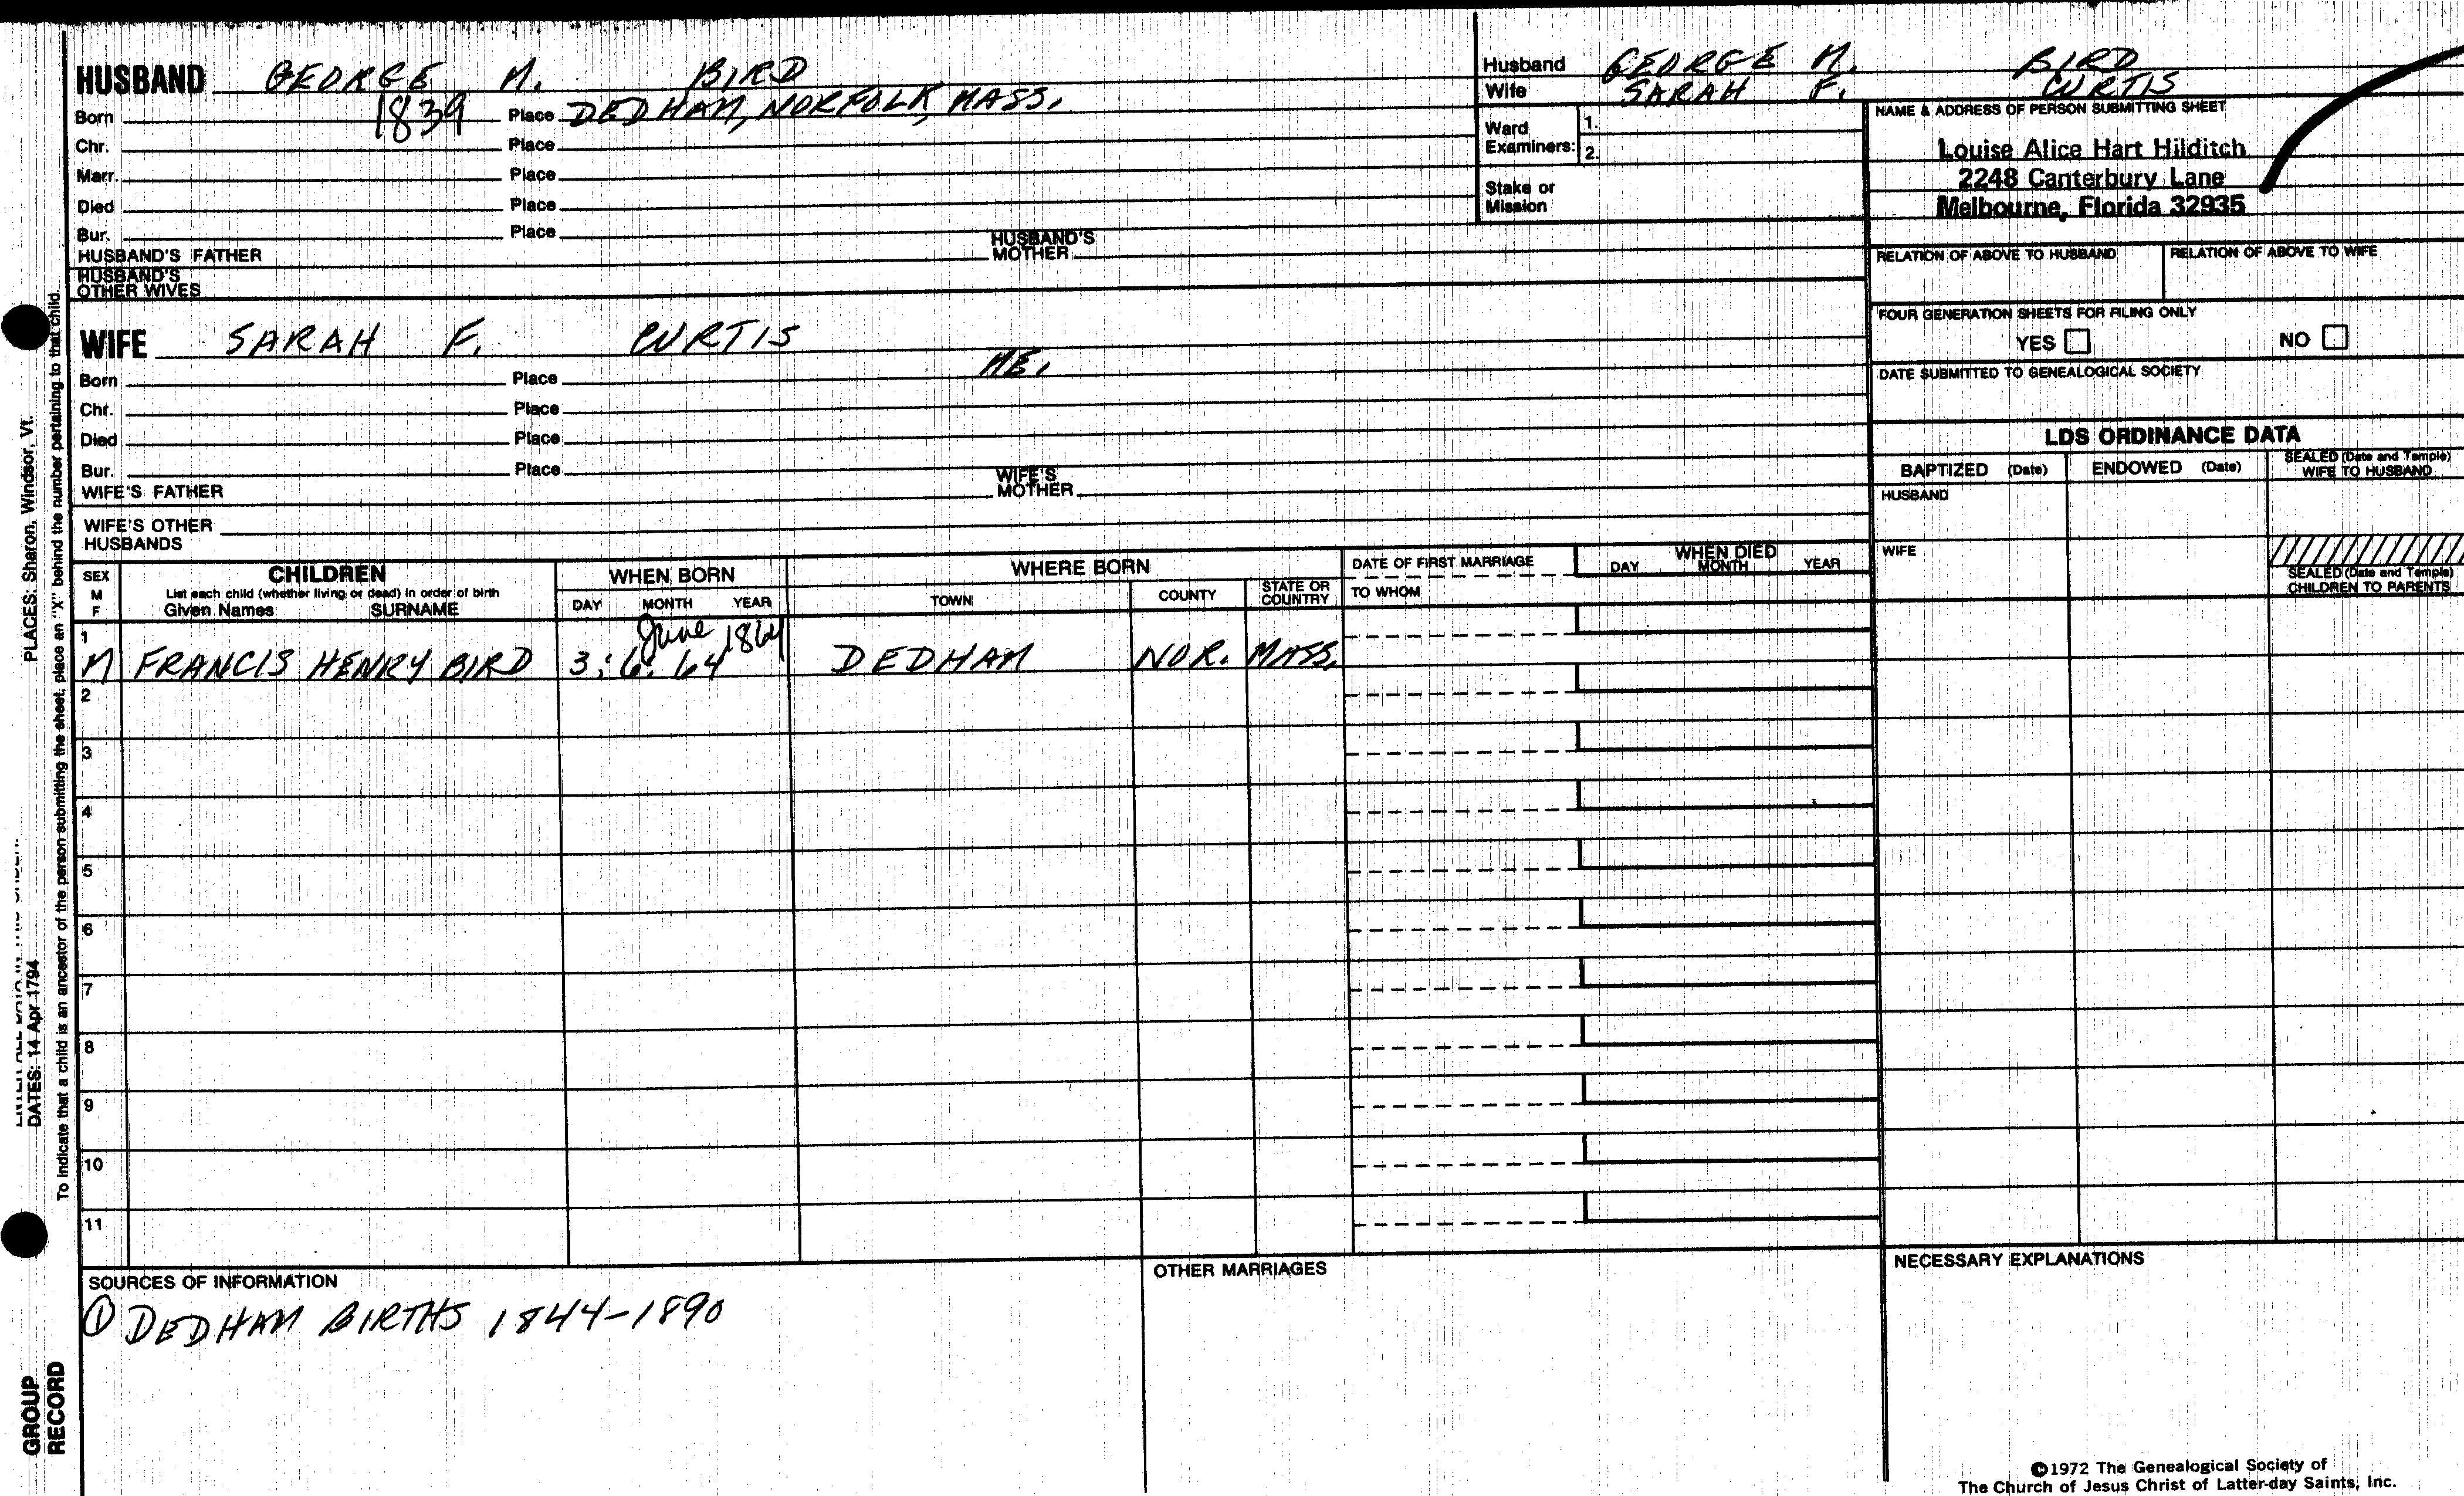 HUSBAND GEORGE M. BIRD
Born 1839 Place DEDHAM, NORFOLK, MASS.
Chr. Place
Marr. Place
Died Place
Bur. Place
HUSBAND'S FATHER HUSBAND'S MOTHER
HUSBAND'S OTHER WIVES
WIFE SARAH F. CURTIS
Born Place ME.
Chr. Place
Died Place
Bur. Place
WIFE'S FATHER WIFE'S MOTHER
WIFE'S OTHER HUSBANDS
Husband GEORGE M. BIRD
Wife SARAH F. CURTIS
Ward Examiners: 1.
2.
Stake or Mission
NAME & ADDRESS OF PERSON SUBMITTING SHEET
Louise Alice Hart Hilditch
2248 Canterbury Lane
Melbourne, Florida 32935
RELATION OF ABOVE TO HUSBAND RELATION OF ABOVE TO WIFE
FOUR GENERATION SHEETS FOR FILING ONLY
YES NO
DATE SUBMITTED TO GENEALOGICAL SOCIETY
LDS ORDINANCE DATA
BAPTIZED (Date) ENDOWED (Date) SEALED (Date and Temple) WIFE TO HUSBAND
HUSBAND
WIFE
SEALED (Date and Temple) CHILDREN TO PARENTS
SEX M F
CHILDREN
List each child (whether living or dead) in order of birth
Given Names SURNAME
WHEN BORN
DAY MONTH YEAR
WHERE BORN
TOWN COUNTY STATE OR COUNTRY
DATE OF FIRST MARRIAGE
TO WHOM
WHEN DIED
DAY MONTH YEAR
1
June 1864
M FRANCIS HENRY BIRD 3:6:64 DEDHAM NOR. MASS.
2
3
4
5
6
7
8
9
10
11
SOURCES OF INFORMATION
① DEDHAM BIRTHS 1844-1890
OTHER MARRIAGES
NECESSARY EXPLANATIONS
©1972 The Genealogical Society of
The Church of Jesus Christ of Latter-day Saints, Inc.
PLACES: Sharon, Windsor, Vt.
DATES: 14 Apr 1794
To indicate that a child is an ancestor of the person submitting the sheet, place an "X" behind the number pertaining to that child.
GROUP
RECORD